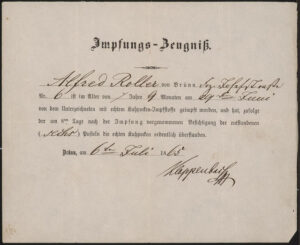 Impfungs-Zeugniß.
Alfred Roller von Brünn,
Nr. 6 ist im Alter von 7 Jahre 9 Monaten am 29ten Juni
von dem Unterzeichneten mit echtem Kuhpocken-Impfstoffe geimpft worden, und hat, zufolge
der am 8ten Tage nach der Impfung vorgenommenen Besichtigung der entstandenen
(sechs) Pusteln die echten Kuhpocken ordentlich überstanden.
Brünn, am 6ten Juli 1865